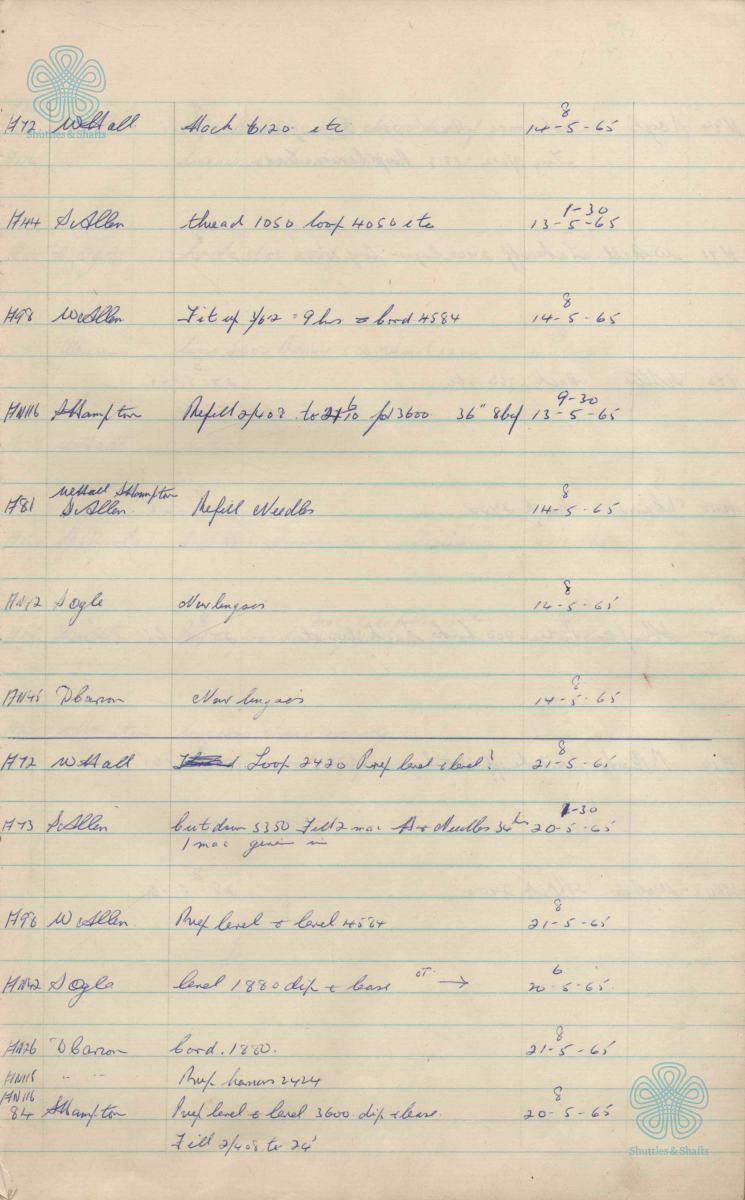 Shuttles & Shafts
H72 W Hall Mach 6120 etc 8 14-5-65
H44 S. Allen thread 1050 loop 4050 etc 1-30 13-5-65
H98 W. Allen Fit up 3/62 = 9 hrs & cord 4584 8 14-5-65
HN116 S Hampton Refill 2/408 to for 3600 36" 9-30 13-5-65
W Hall S Hampton 8
H81 S. Allen Refill Needles 14-5-65
HN42 S Ogle New lingoes 8 14-5-65
HN45 D Caron New lingoes 8 14-5-65
H72 W Hall Loop 2420 Prep level & level? 8 21-5-65
H73 S. Allen Cut down 5350 Fill 2 mac Needles 36 hrs 1-30 20-5-65
1 mac in
H98 W. Allen Prep level & level 4584 8 21-5-65
HN42 S Ogle level 1880 dip & lease OT. → 6 20-5-65
HN26 D Caron Cord. 1880. 8 21-5-65
HN115 " " Prep harness 2424
HN116
84 S Hampton Prep level & level 3600. dip & lease. 8 20-5-65
Fill 2/408 to 24'
Shuttles & Shafts